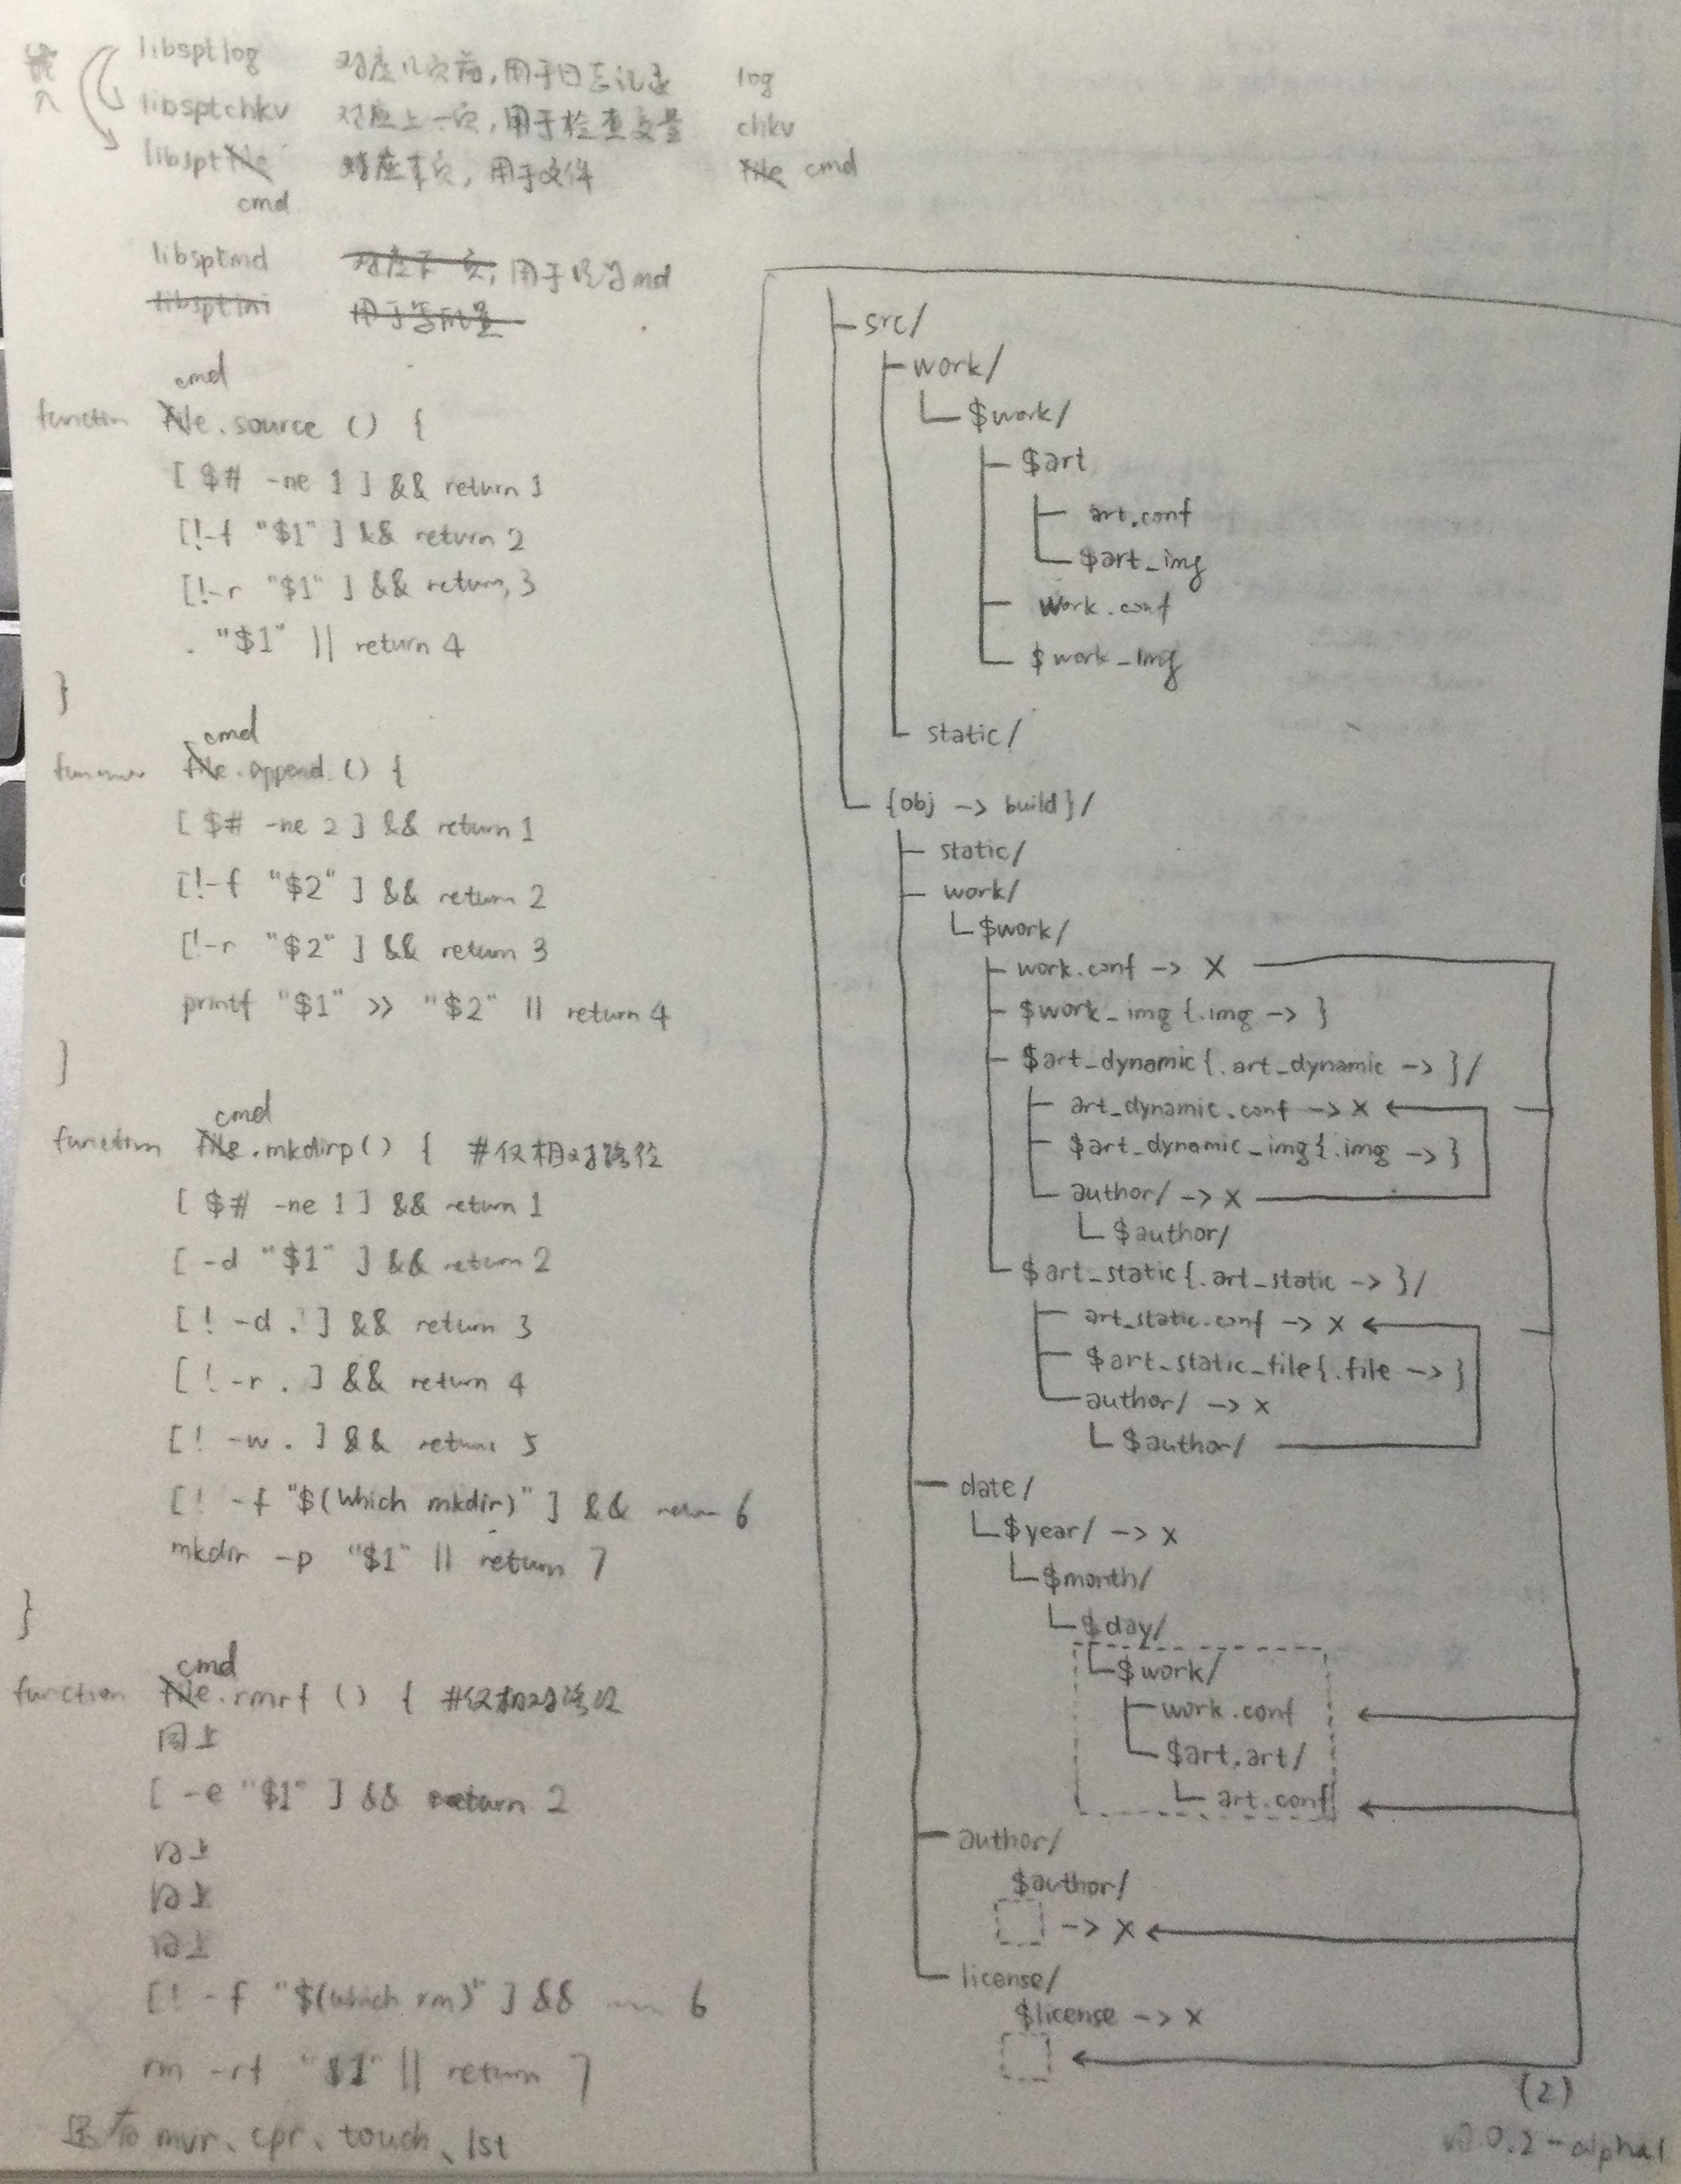 libsptlog 对应几页前,用于日志记录 log
libsptchkv 对应上一页,用于检查变量 chkv
libsptfile 对应本页,用于文件 file cmd
cmd
libsptmd 对应下一页, 用于 md
libsptini 用于
cmd
function file.source () {
[ $# -ne 1 ] && return 1
[!-f "$1" ] && return 2
[!-r "$1" ] && return 3
. "$1" || return 4
}
cmd
function file.append () {
[ $# -ne 2 ] && return 1
[!-f "$2" ] && return 2
[!-r "$2" ] && return 3
printf "$1" >> "$2" || return 4
}
cmd
function file.mkdirp() { #仅相对路径
[ $# -ne 1 ] && return 1
[ -d "$1" ] && return 2
[ ! -d . ] && return 3
[ ! -r . ] && return 4
[ ! -w . ] && return 5
[ ! -f "$(which mkdir)" ] && return 6
mkdir -p "$1" || return 7
}
cmd
function file.rmrf () { #仅相对路径
同上
[ -e "$1" ] && return 2
同上
同上
同上
[! -f "$(which rm)" ] && 6
rm -rf "$1" || return 7
mvr、cpr、touch、lst
├─ src/
├─ work/
└─ $work/
├─ $art
├─ art.conf
└─ $art_img
├─ work.conf
└─ $work_img
└─ static/
└─ {obj -> build}/
├─ static/
├─ work/
└─ $work/
├─ work.conf -> X
├─ $work_img {.img -> }
├─ $art_dynamic{.art_dynamic -> }/
├─ art_dynamic.conf -> X
├─ $art_dynamic_img{.img -> }
└─ author/ -> X
└─ $author/
└─ $art_static{.art_static -> }/
├─ art_static.conf -> X
├─ $art_static_file{.file -> }
└─ author/ -> X
└─ $author/
├─ date/
└─ $year/ -> X
└─ $month/
└─ $day/
└─ $work/
├─ work.conf
└─ $art.art/
└─ art.conf
├─ author/
$author/
-> X
└─ license/
$license -> X
(2)
v0.0.2-alpha1